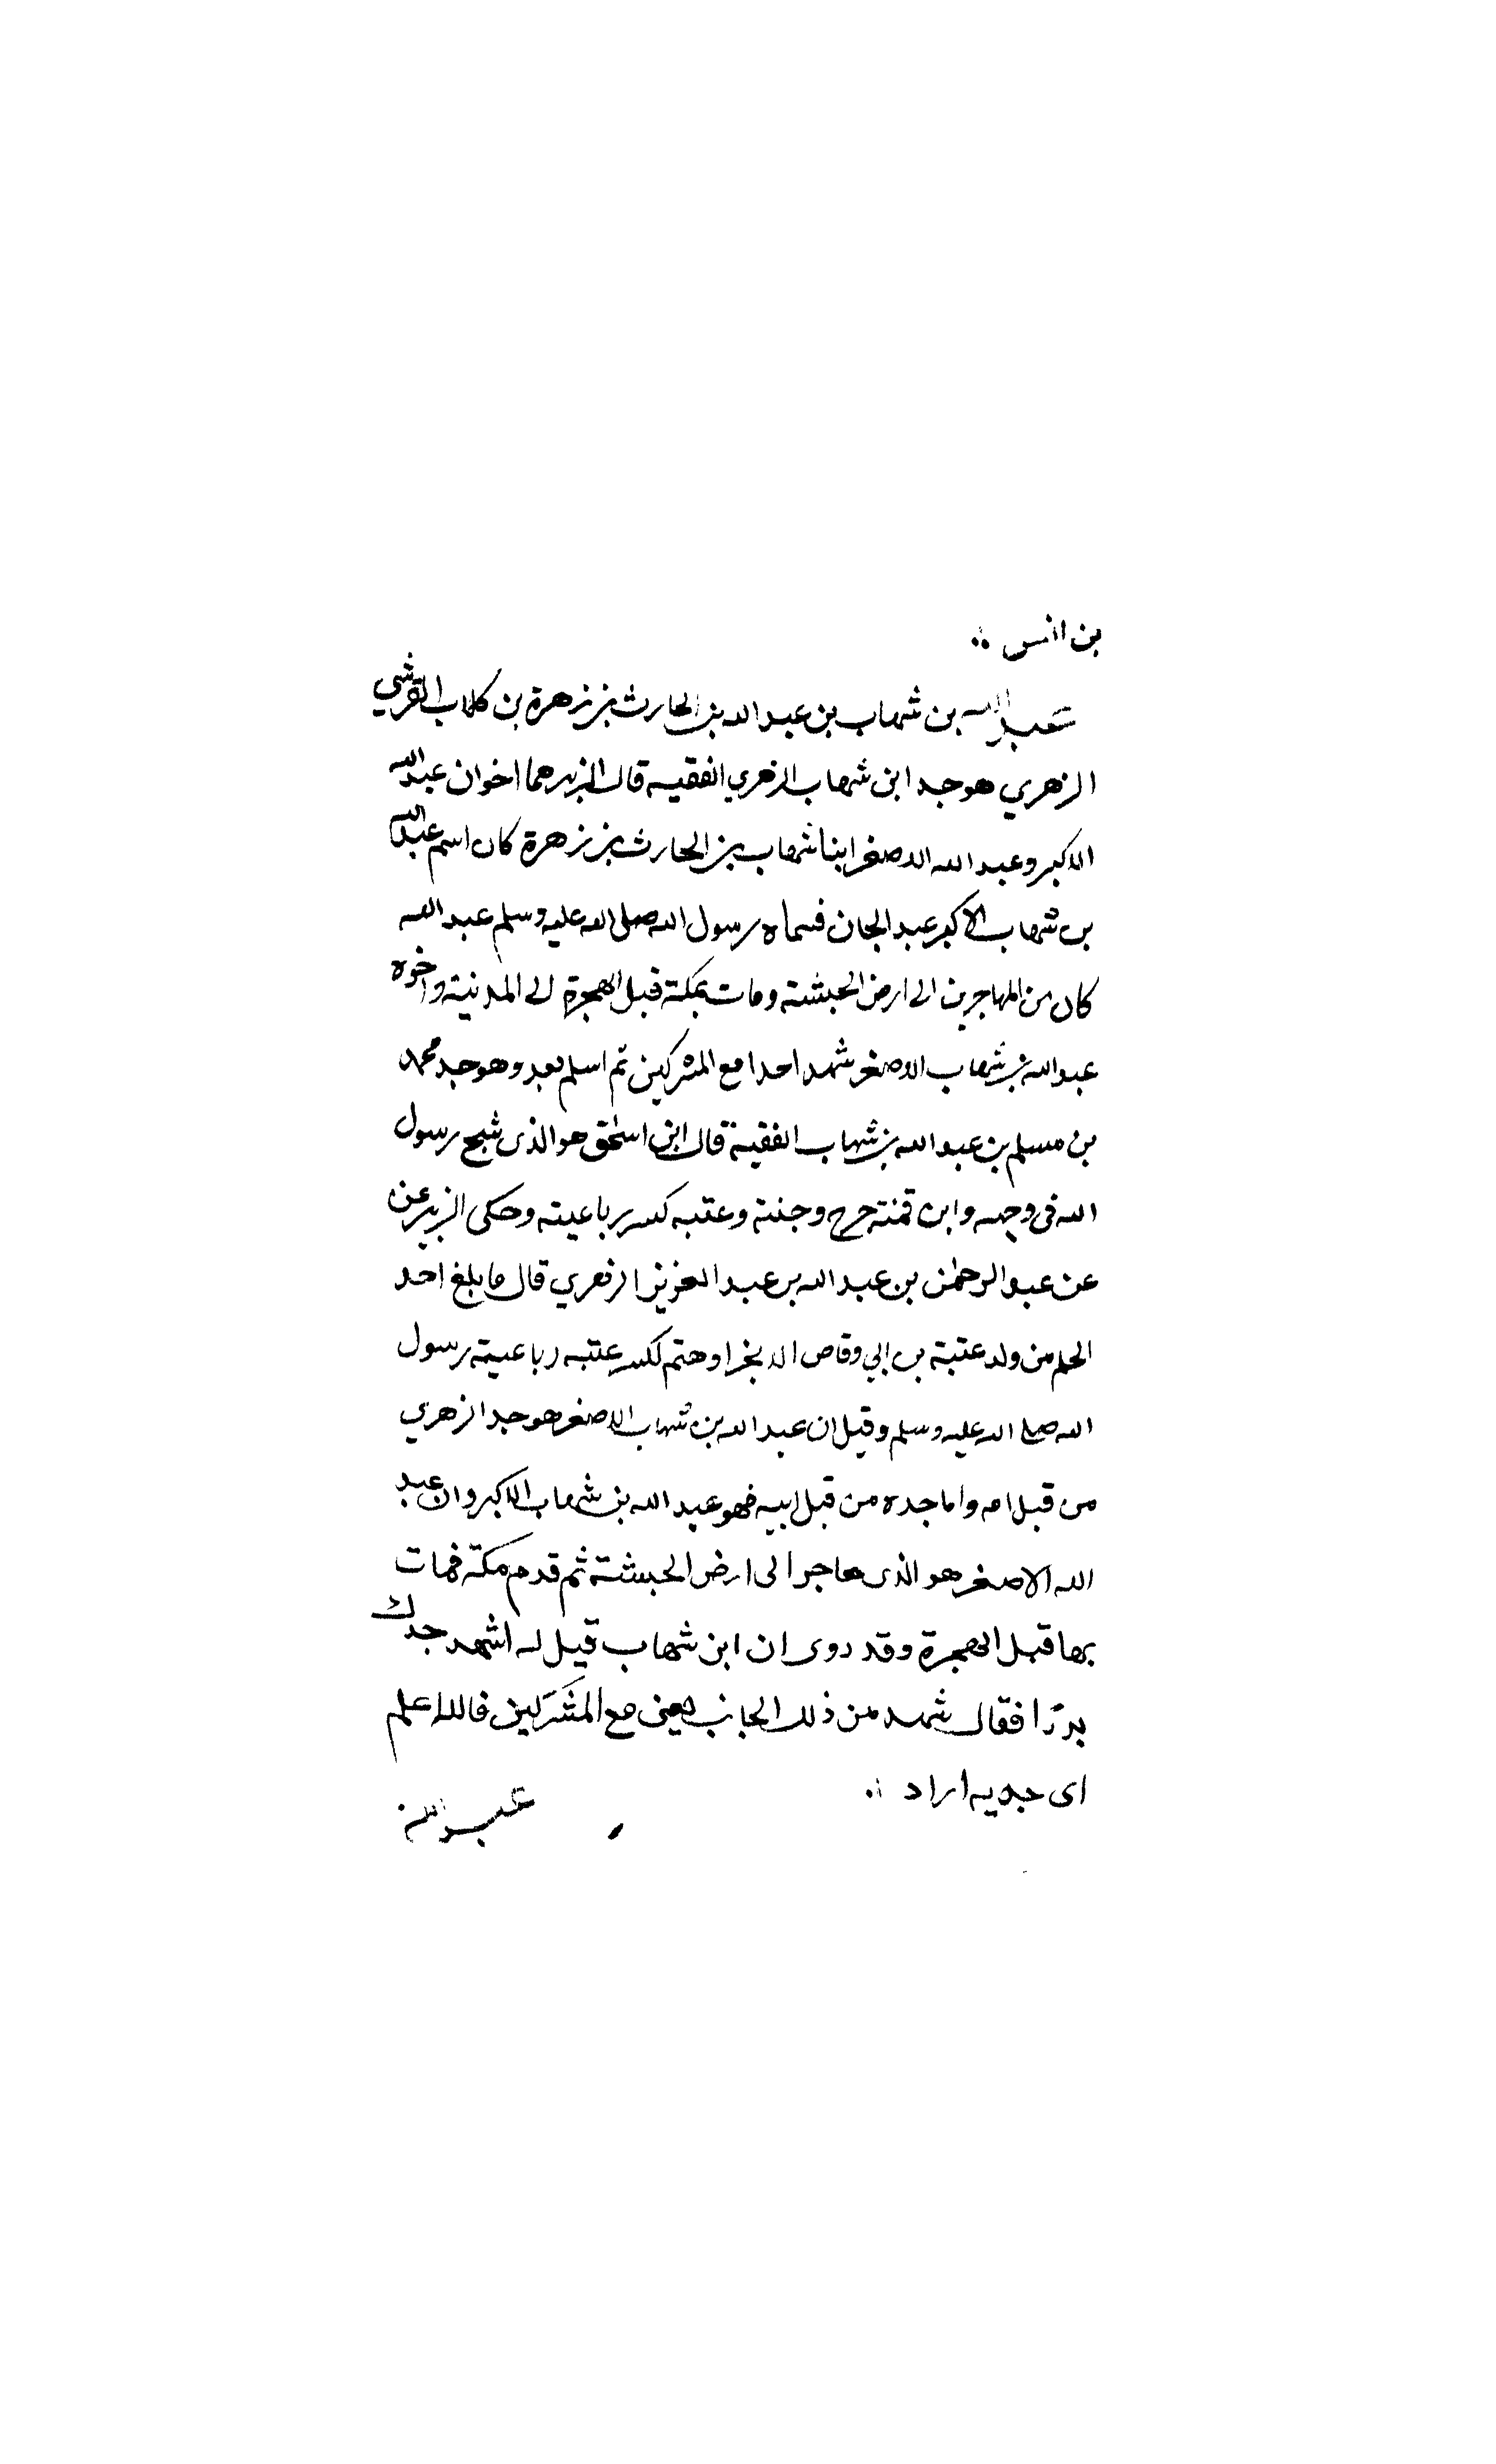 بن انس ∴
عبد الله بن شهاب بن عبد الله بن الحارث بن زهرة بن كلاب القرشي
الزهري هو جد ابن شهاب الزهري الفقيه قال الزبير هما اخوان عبد الله
الاكبر وعبد الله الاصغر ابنا شهاب بن الحارث بن زهرة كان اسم عبد الله
بن شهاب الاكبر عبد الجان فسماه رسول الله صلى الله عليه وسلم عبد الله
كان من المهاجرين الى ارض الحبشة ومات بمكة قبل الهجرة الى المدينة واخوه
عبد الله بن شهاب الاصغر شهد احدا مع المشركين ثم اسلم بعد وهو جد محمد
بن مسلم بن عبد الله بن شهاب الفقيه قال ابن اسحق هو الذى شج رسول
الله فى وجهه وابن قمئة جرح وجنته وعتبه كسر رباعيته وحكى الزبير عن
عن عبد الرحمن بن عبد الله بن عبد العزيز الزهري قال ما بلغ احد
الحلم من ولد عتبة بن ابي وقاص الا بخر او هتم لكسر عتبه رباعيته رسول
الله صلى الله عليه وسلم وقيل ان عبد الله بن شهاب الاصغر هو جد الزهري
من قبل امه واما جده من قبل ابيه فهو عبد الله بن شهاب الاكبر وان عبد
الله الاصغر هو الذى هاجر الى ارض الحبشة ثم قدم مكة فمات
بها قبل الهجرة وقد روى ان ابن شهاب قيل له اشهد جدك
بدرًا فقال شهد من ذلك الجانب يعنى مع المشركين فالله اعلم
اى جديه اراد ∴
عبد الله